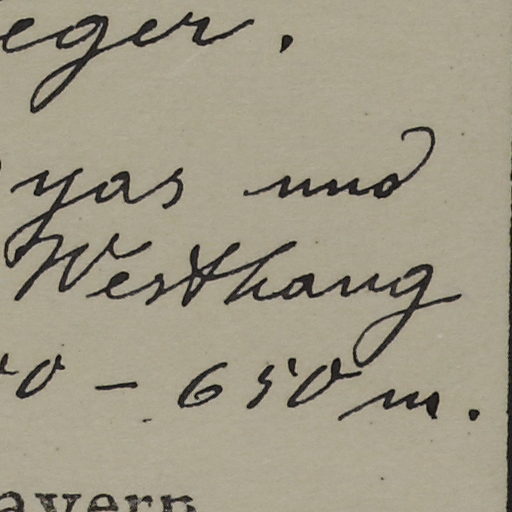 eger.
yas und
Westhang
50 - 650 m.
ayern